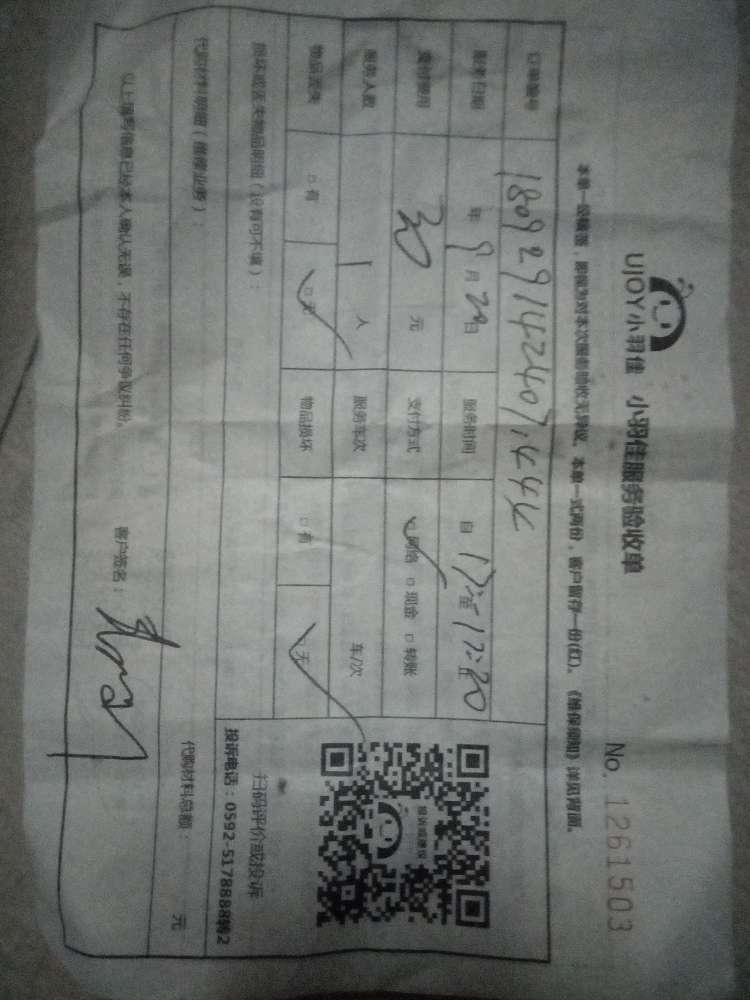 UJOY小羽佳 小羽佳服务验收单
No. 1261503
本单一经签署，即视为对本次服务验收无异议，本单一式两份，客户留存一份(红)。《维保须知》详见背面。
订单编号
服务日期 年 9 月 29 日 服务时间 自 17:00 至 17:20 止
支付费用 30 元 支付方式 网络 □ 现金 □ 转账
服务人数 1 人 服务车次 车/次
物品丢失 □ 有 □ 无 物品损坏 □ 有 □ 无
损坏或丢失物品明细（没有可不填）：
扫码评价或投诉
投诉电话：0592-5178888转2
代购材料明细（维修业务）：
代购材料总额： 元
以上填写信息已经本人确认无误，不存在任何争议纠纷。
客户签名：